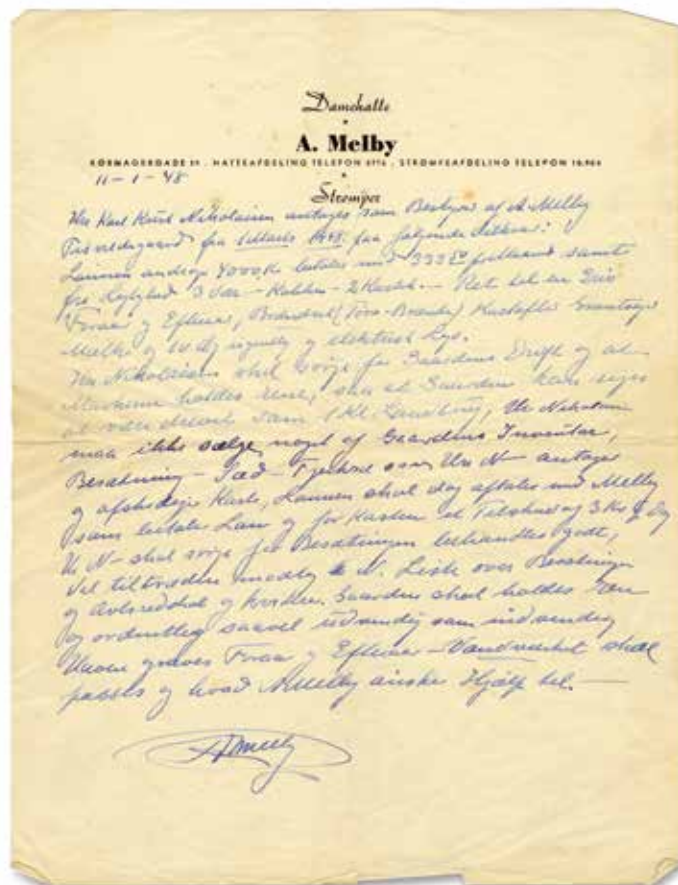 Damehatte
A. Melby
KØBMAGERGADE 59 . HATTEAFDELING TELEFON 6976 . STRØMPEAFDELING TELEFON 10,906
11-1-48
Strømper
Hr Karl Nikolaisen antages som Bestyrer af A. Melby
fra 1 Marts 1948 paa følgende Vilkaar:
Lønnen andrager 4000 Kr betales med 333 samt
fri 3 Vær - Køkken - 2
Foraar og Efteraar, Brændsel (Tørv-Brænde) Kartofler
Melk og og elektrisk Lys.
Hr Nikolaisen skal sørge for Gaardens Drift og at
Markerne holdes rene, saa at Gaarden kan siges
at være drevet som 1 Kl. Landbrug, Hr Nikolaisen
maa ikke sælge noget af Gaardens Inventar,
Besætning - Sæd - Fjerkræ osv Hr N - antager
og afskediger Karle, Lønnen skal dog aftales med Melby
som betaler Løn og for Kosten et Tilskud af 3 Kr
Hr N - skal sørge for Besætningen behandles godt,
Ved tiltræden N. Liste over Besætningen
og Avlsredskab og Gaarden skal holdes ren
og ordentlig saavel udvendig som indvendig
Haven graves Foraar og Efteraar - Vandværket skal
passes og hvad A Melby ønsker Hjælp til. -
A Melby